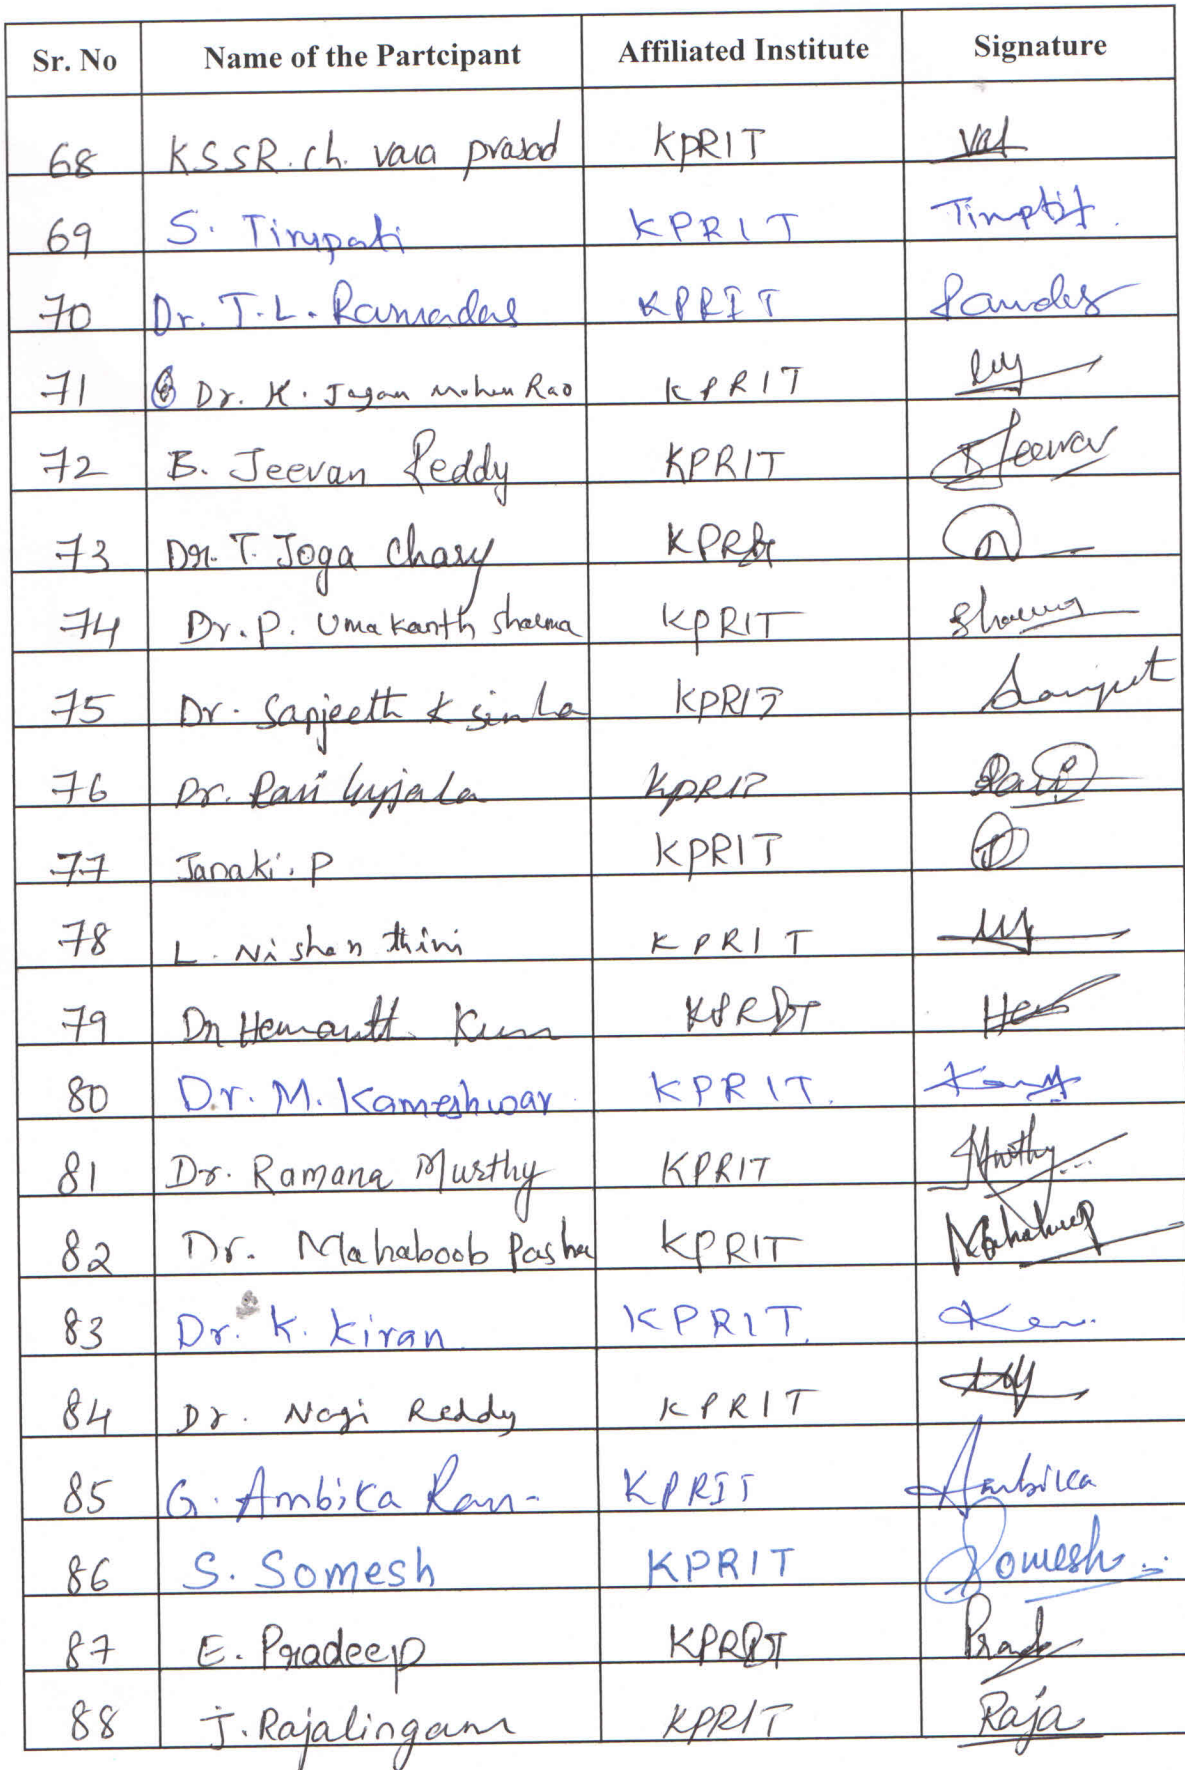 Sr. No Name of the Partcipant Affiliated Institute Signature
68 KSSR. ch. vara prasad KPRIT
69 S. Tirupati KPRIT
70 Dr. T. L. Ramadas KPRIT
71 Dr. K. Jagan Mohan Rao KPRIT
72 B. Jeevan Reddy KPRIT BJeevan
73 Dr. T. Joga Chary KPRIT
74 Dr. P. Uma Kanth Sharma KPRIT Sharma
75 Dr. Sanjeeth K sinha KPRIT Sanjeet
76 Dr. Ravi KPRIT Ravi
77 Janaki. P KPRIT
78 L. Nishan thini KPRIT
79 Dr Hemanth Kum KPRIT
80 Dr. M. Kameshwar KPRIT.
81 Dr. Ramana Murthy KPRIT Murthy
82 Dr. Mahaboob Pasha KPRIT
83 Dr. K. Kiran KPRIT.
84 Dr. Nagi Reddy KPRIT
85 G. Ambika Rani KPRIT Ambika
86 S. Somesh KPRIT Somesh
87 E. Pradeep KPRIT
88 J. Rajalingam KPRIT Raja